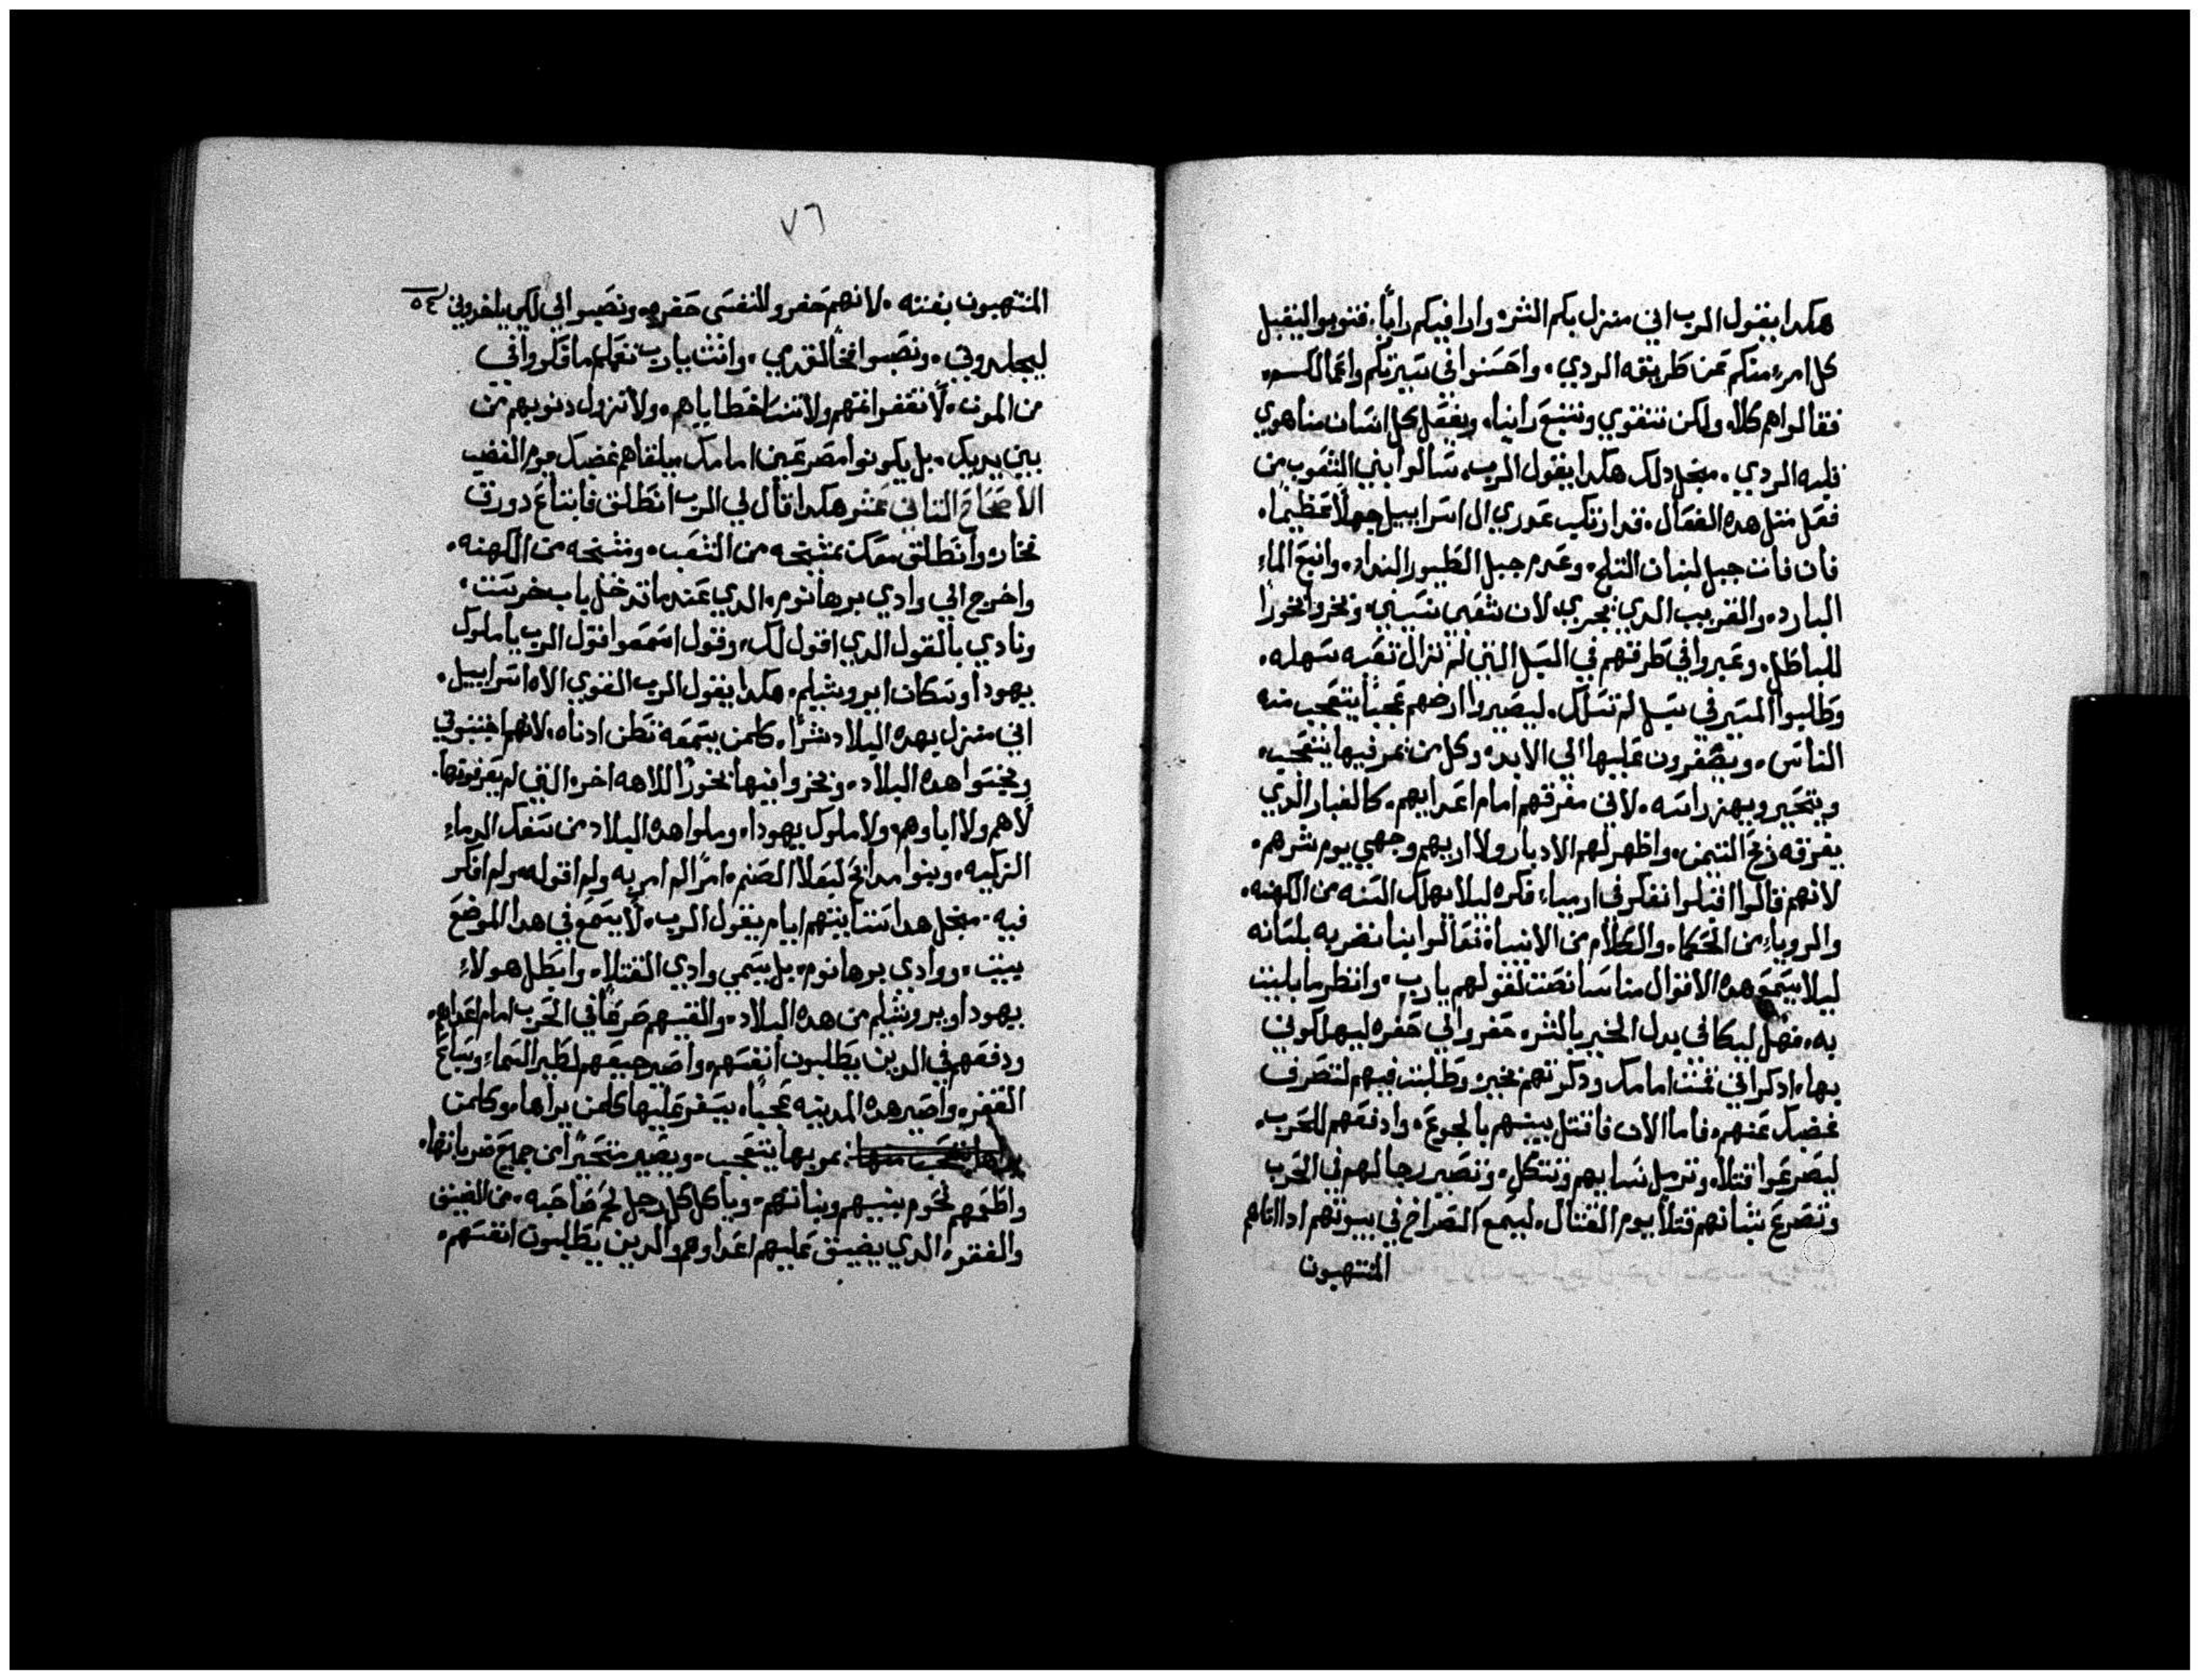 هكدا يقول الرب اني منزل بكم الشر وادا فيكم رايا. فتوبوا ليقبل
كل امرء منكم عن طريقه الردي. واحسنوا في سيرتكم واعمالكم.
فقالوا هم كلا. ولكن نتقوي ونتبع راينا. ويفعل كل انسان منا هوي
قلبه الردي. مجل دلك هكدا يقول الرب. سالوا بني الشعوب من
فعل مثل هده الفعال. قد ارتكب عدوري ال اسراييل جهلا عظيما.
فان فات جبل لبنان التلج. وعدم جبل الطيور النداد. وانبع الماء
البارد. والقريب الدي يجري. لان شعبي نسيني. وبخروا بخورا
للباطل. وعبروا في طرقهم في السبل التي لم تزال تعبه سهله.
وطلبوا المسير في سبل لم تسلك. ليصيروا ارضهم عجبا يتعجب منه
الناس. ويصفرون عليها الي الابد. وكل من عبر فيها يتعجب.
ويتحير ويهز راسه. لاني مفرقهم امام اعدايهم. كالغبار الدي
يفرقه ريح التيمن. واظهر لهم الادبار ولا اريهم وجهي يوم شرهم.
لانهم قالوا اقبلوا نفكر في ارمياء فكره ليلا يهلك السنه من الكهنه.
والروياء من الحكماء. والكلام من الانبياء. تعالوا بنا نضربه بلسانه
ليلا يسمع هده الاقوال منا سانصت لقولهم يارب. وانظر ما بليت
به. فهل ليكافي بدل الخير بالشر. حفروا لي حفره ليهلكوني
بها. ادكر اني قمت امامك ودكرتهم بخير. وطلبت فيهم لتصرف
غضبك عنهم. فاما الان فاقتل بنيهم بالجوع. وادفعهم للحرب.
ليصرعوا قتلا. وترمل نسايهم وتتكل. وتصير رجالهم في الحرب
وتصرع شبانهم قتلا يوم القتال. ليسمع الصراخ في بيوتهم ادا اتاهم
المنتهبون
٧٦
المنتهبون بغته. لانهم حفروا لنفسي حفره. ونصبوا لي لكي ياخدوني
ليجلدوني. ونصبوا فخا لقدمي. وانت يارب تعلم ما فكروا في
من الموت. لا تغفر اتمهم ولا تنسا خطاياهم. ولا تزول دنوبهم من
بين يديك. بل يكونوا مصرعين امامك. يلقاهم غضبك يوم الغضب
الاصحاح التاني عشر هكدا قال لي الرب انطلق فابتاع دورق
فخار. وانطلق معك بمشيخه من الشعب. ومشيخه من الكهنه.
واخرج الي وادي برهانوم. الدي عند ما تدخل باب خرست.
ونادي بالقول الدي اقول لك. وقول اسمعوا قول الرب يا ملوك
يهودا وسكان ايروشليم. هكدا يقول الرب القوي الاه اسراييل.
اني منزل بهده البلاد شرا. كلمن يسمعه تطن ادناه. لانهم اجتنبوني
ونجسوا هده البلاد. وبخروا فيها بخورا لالاهه اخره التي لم يعرفوها.
لا هم ولا اباوهم. ولا ملوك يهودا. وملوا هده البلاد من سفك الدماء
الزكيه. وبنوا مدابح لبعلا الصنم. امرا لم امر به ولم اقوله. ولم افكر
فيه. مجل هدا ستاتيهم ايام يقول الرب. لا يسمع في هدا الموضع
بيت. ووادي برهانوم. بل يسمي وادي القتلا. وابطل هولاء
يهودا ويروشليم من هده البلاد. والقيهم صرعا في الحرب امام اعداهم.
ودفعهم في الدين يطلبون انفسهم. واصير جيفهم لطير السماء وسباع
القفر. واصير هده المدينه عجبا. يصفر عليها كلمن يراها. وكلمن
يمر بها يتعجب. ويصير متحيرا من جميع ضرباتها.
واطعمهم لحوم بنيهم وبناتهم. وياكل كل رجل لحم صاحبه. من الضيق
والفقر. الدي يضيق عليهم اعداوهم والدين يطلبون انفسهم.